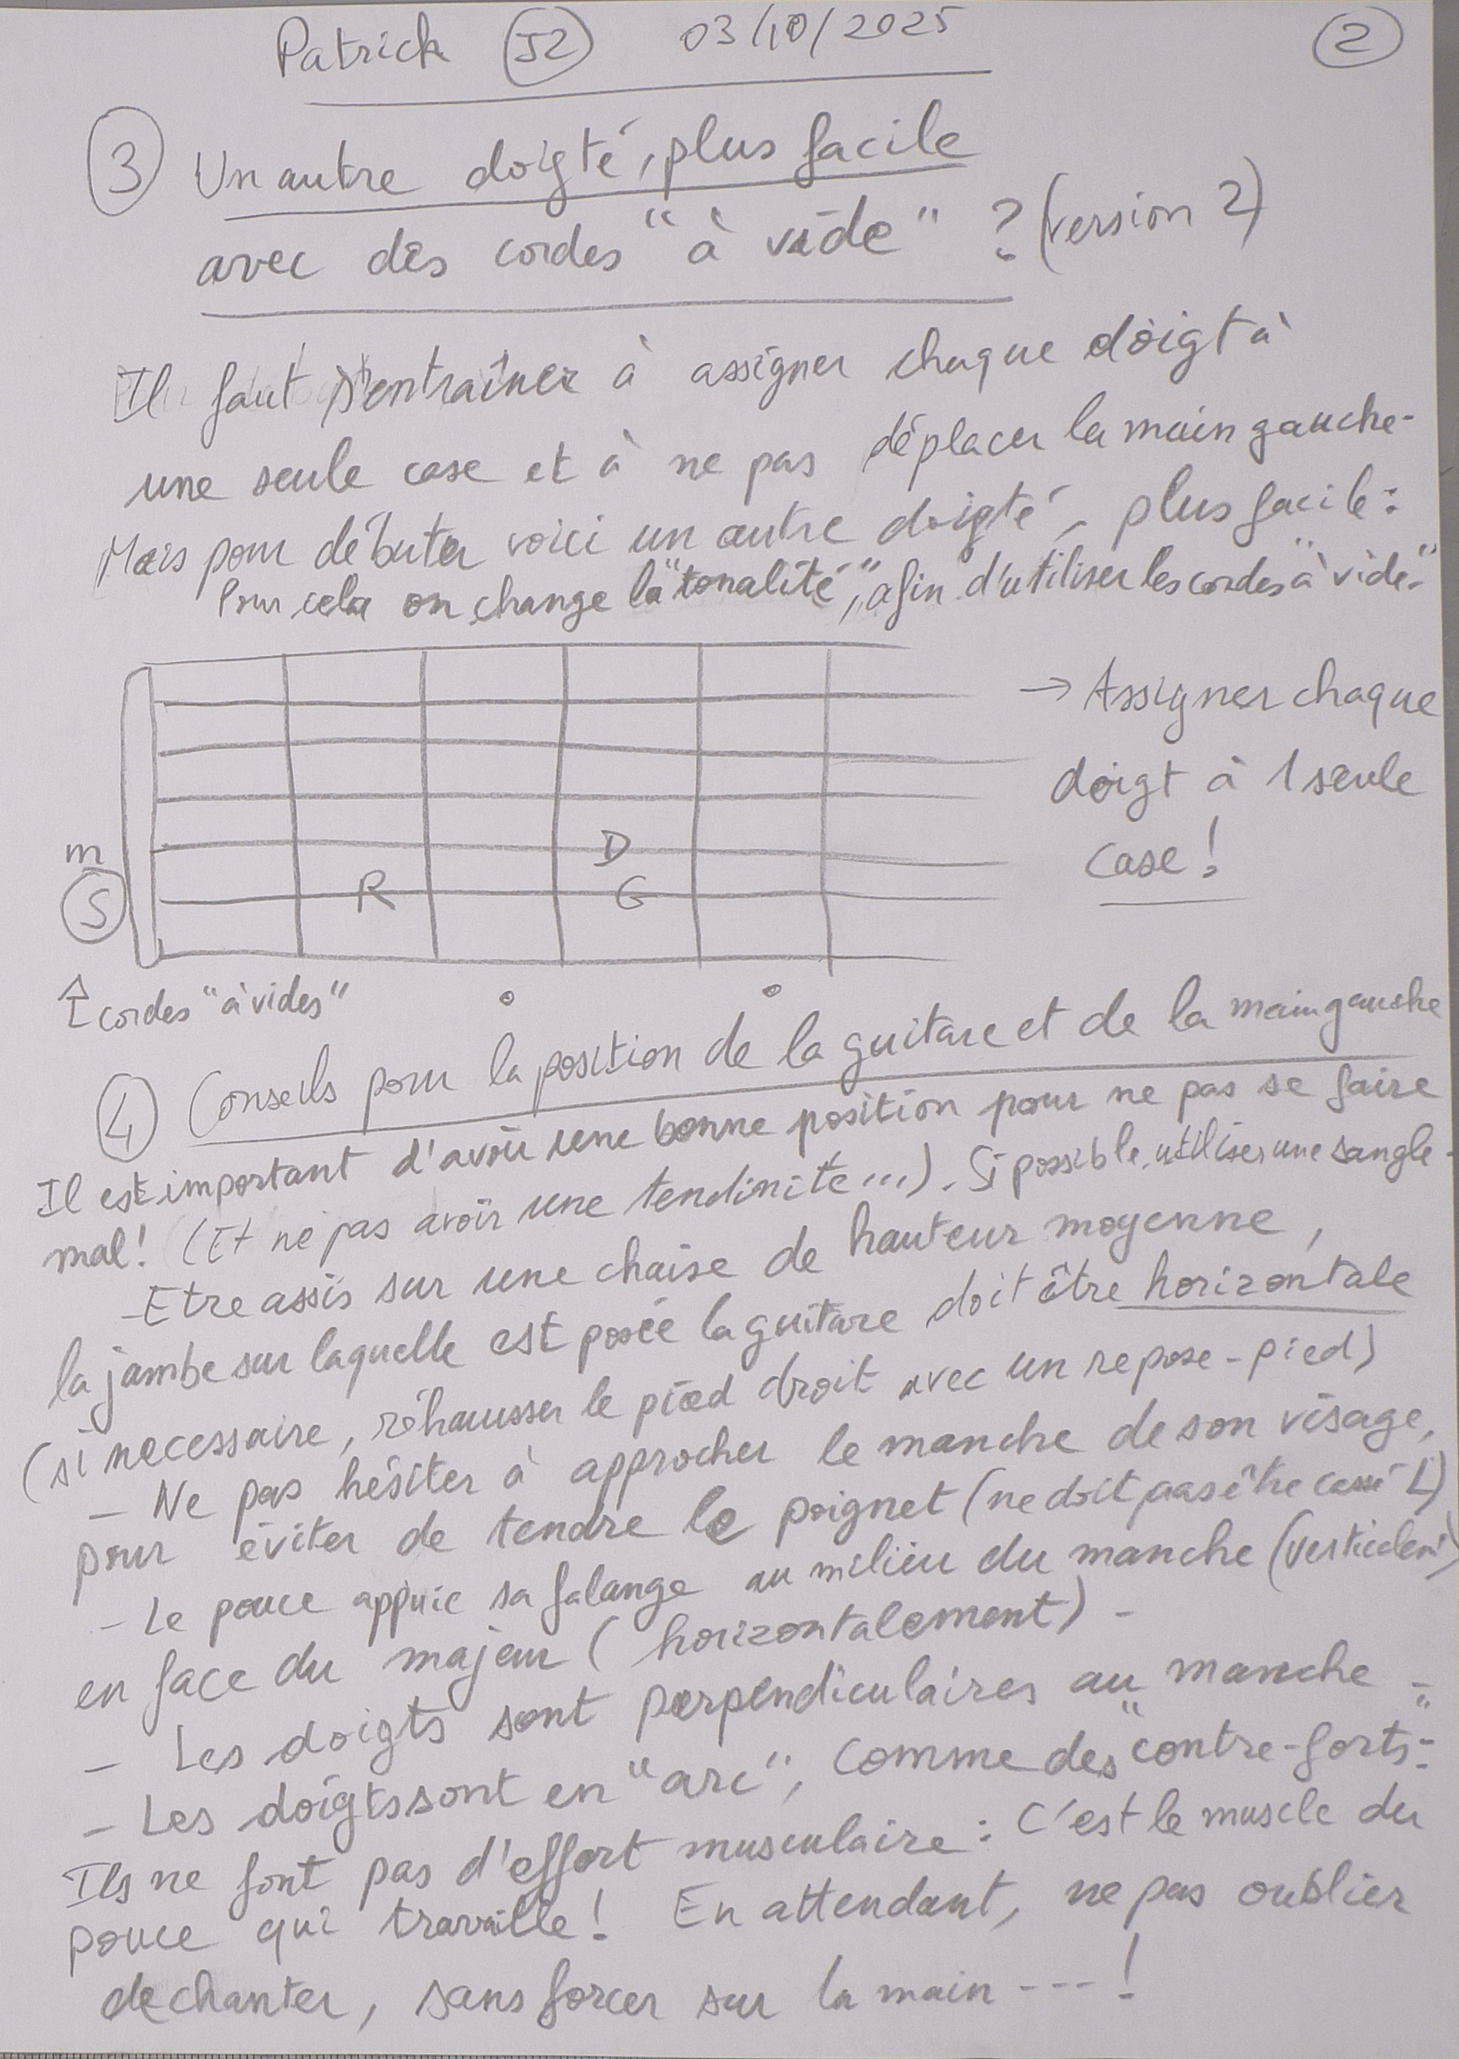 Patrick J2 03/10/2025 2
3 Un autre doigté, plus facile
avec des cordes "à vide" ? (version 2)
Il faut s'entraîner à assigner chaque doigt à
une seule case et à ne pas déplacer la main gauche-
Mais pour débuter voici un autre doigté, plus facile :
Pour cela on change la "tonalité", afin d'utiliser les cordes "à vide."
→ Assigner chaque
doigt à 1 seule
case !
m D
S R G
↑ cordes "à vides"
4 Conseils pour la position de la guitare et de la main gauche
Il est important d'avoir une bonne position pour ne pas se faire
mal ! (Et ne pas avoir une tendinite...). Si possible, utiliser une sangle-
- Etre assis sur une chaise de hauteur moyenne,
la jambe sur laquelle est posée la guitare doit être horizontale
(si necessaire, réhausser le pied droit avec un repose-pied)
- Ne pas hésiter à approcher le manche de son visage,
pour éviter de tendre le poignet (ne doit pas être cassé L)
- Le pouce appuie sa falange au milieu du manche (verticalemt)
en face du majeur (horizontalement) -
- Les doigts sont perpendiculaires au manche -
- Les doigts sont en "arc", comme des "contre-forts" :
Ils ne font pas d'effort musculaire : C'est le muscle du
pouce qui travaille ! En attendant, ne pas oublier
de chanter, sans forcer sur la main --- !